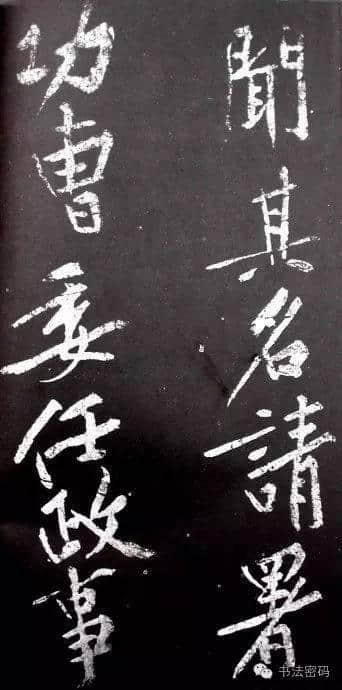 聞其名請署
功曹委任政事
书法密码